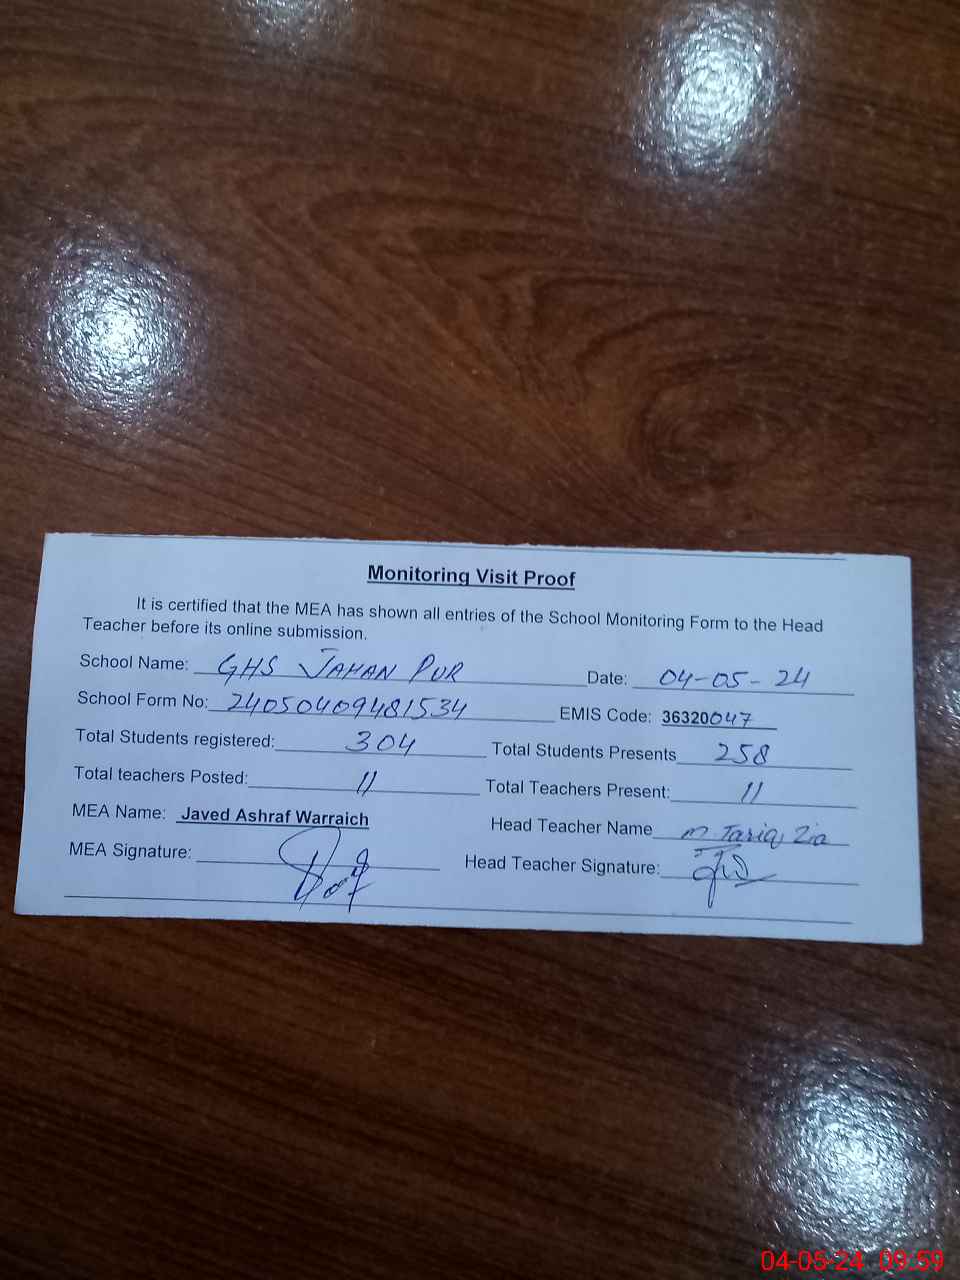 Monitoring Visit Proof
It is certified that the MEA has shown all entries of the School Monitoring Form to the Head
Teacher before its online submission.
School Name: GHS JAHAN PUR Date: 04-05-24
School Form No: 24050409481534 EMIS Code: 36320047
Total Students registered: 304 Total Students Presents 258
Total teachers Posted: 11 Total Teachers Present: 11
MEA Name: Javed Ashraf Warraich Head Teacher Name M Tariq Zia
MEA Signature: Head Teacher Signature:
04-05-24 09:59